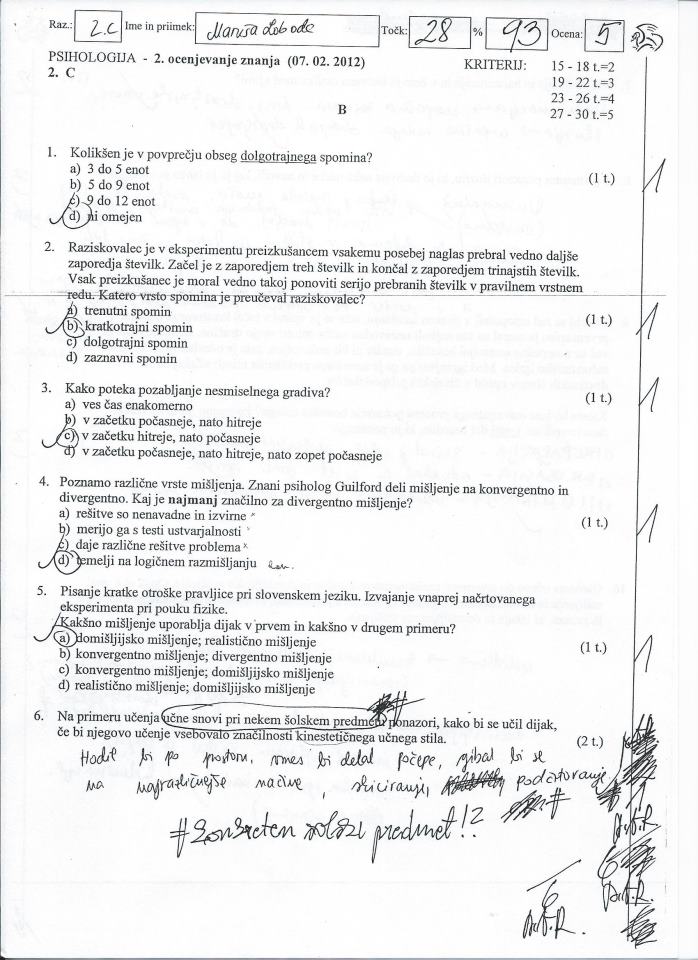 Raz.: 2.C Ime in priimek: Maruša Lobode Točk: 28 % 93 Ocena: 5
PSIHOLOGIJA - 2. ocenjevanje znanja (07. 02. 2012)
2. C
KRITERIJ: 15 - 18 t.=2
19 - 22 t.=3
23 - 26 t.=4
27 - 30 t.=5
B
1. Kolikšen je v povprečju obseg dolgotrajnega spomina?
a) 3 do 5 enot (1 t.) 1
b) 5 do 9 enot
c) 9 do 12 enot
d) ni omejen
2. Raziskovalec je v eksperimentu preizkušancem vsakemu posebej naglas prebral vedno daljše
zaporedja številk. Začel je z zaporedjem treh številk in končal z zaporedjem trinajstih številk.
Vsak preizkušanec je moral vedno takoj ponoviti serijo prebranih številk v pravilnem vrstnem
redu. Katero vrsto spomina je preučeval raziskovalec?
a) trenutni spomin (1 t.) 1
b) kratkotrajni spomin
c) dolgotrajni spomin
d) zaznavni spomin
3. Kako poteka pozabljanje nesmiselnega gradiva? (1 t.) 1
a) ves čas enakomerno
b) v začetku počasneje, nato hitreje
c) v začetku hitreje, nato počasneje
d) v začetku počasneje, nato hitreje, nato zopet počasneje
4. Poznamo različne vrste mišljenja. Znani psiholog Guilford deli mišljenje na konvergentno in
divergentno. Kaj je najmanj značilno za divergentno mišljenje?
a) rešitve so nenavadne in izvirne x (1 t.) 1
b) merijo ga s testi ustvarjalnosti
c) daje različne rešitve problema x
d) temelji na logičnem razmišljanju kon.
5. Pisanje kratke otroške pravljice pri slovenskem jeziku. Izvajanje vnaprej načrtovanega
eksperimenta pri pouku fizike.
Kakšno mišljenje uporablja dijak v prvem in kakšno v drugem primeru?
a) domišljijsko mišljenje; realistično mišljenje (1 t.) 1
b) konvergentno mišljenje; divergentno mišljenje
c) konvergentno mišljenje; domišljijsko mišljenje
d) realistično mišljenje; domišljijsko mišljenje
6. Na primeru učenja učne snovi pri nekem šolskem predmetu ponazori, kako bi se učil dijak,
če bi njegovo učenje vsebovalo značilnosti kinestetičnega učnega stila. (2 t.)
Hodil bi po prostoru, vmes bi delal počepe, gibal bi se
na najrazličnejše načine, skiciranje, podčrtovanje
# konkreten šolski predmet!?